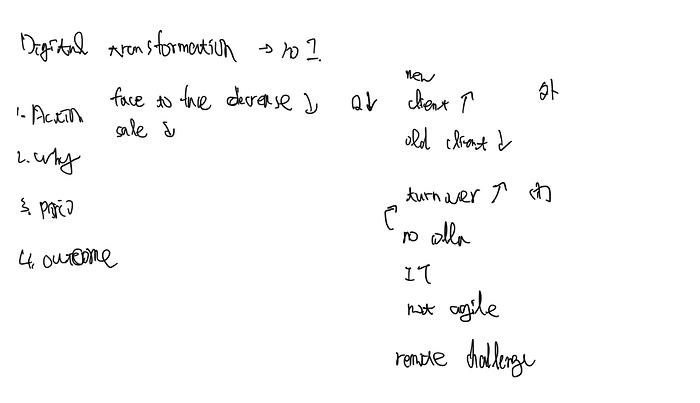 Digital transformation → no I.
1. Action face to face decrease ↓
sale ↓
2. why
3.
4. outcome
new
client ↑
old client ↓
turnover ↑
no
IT
not agile
remote challenge